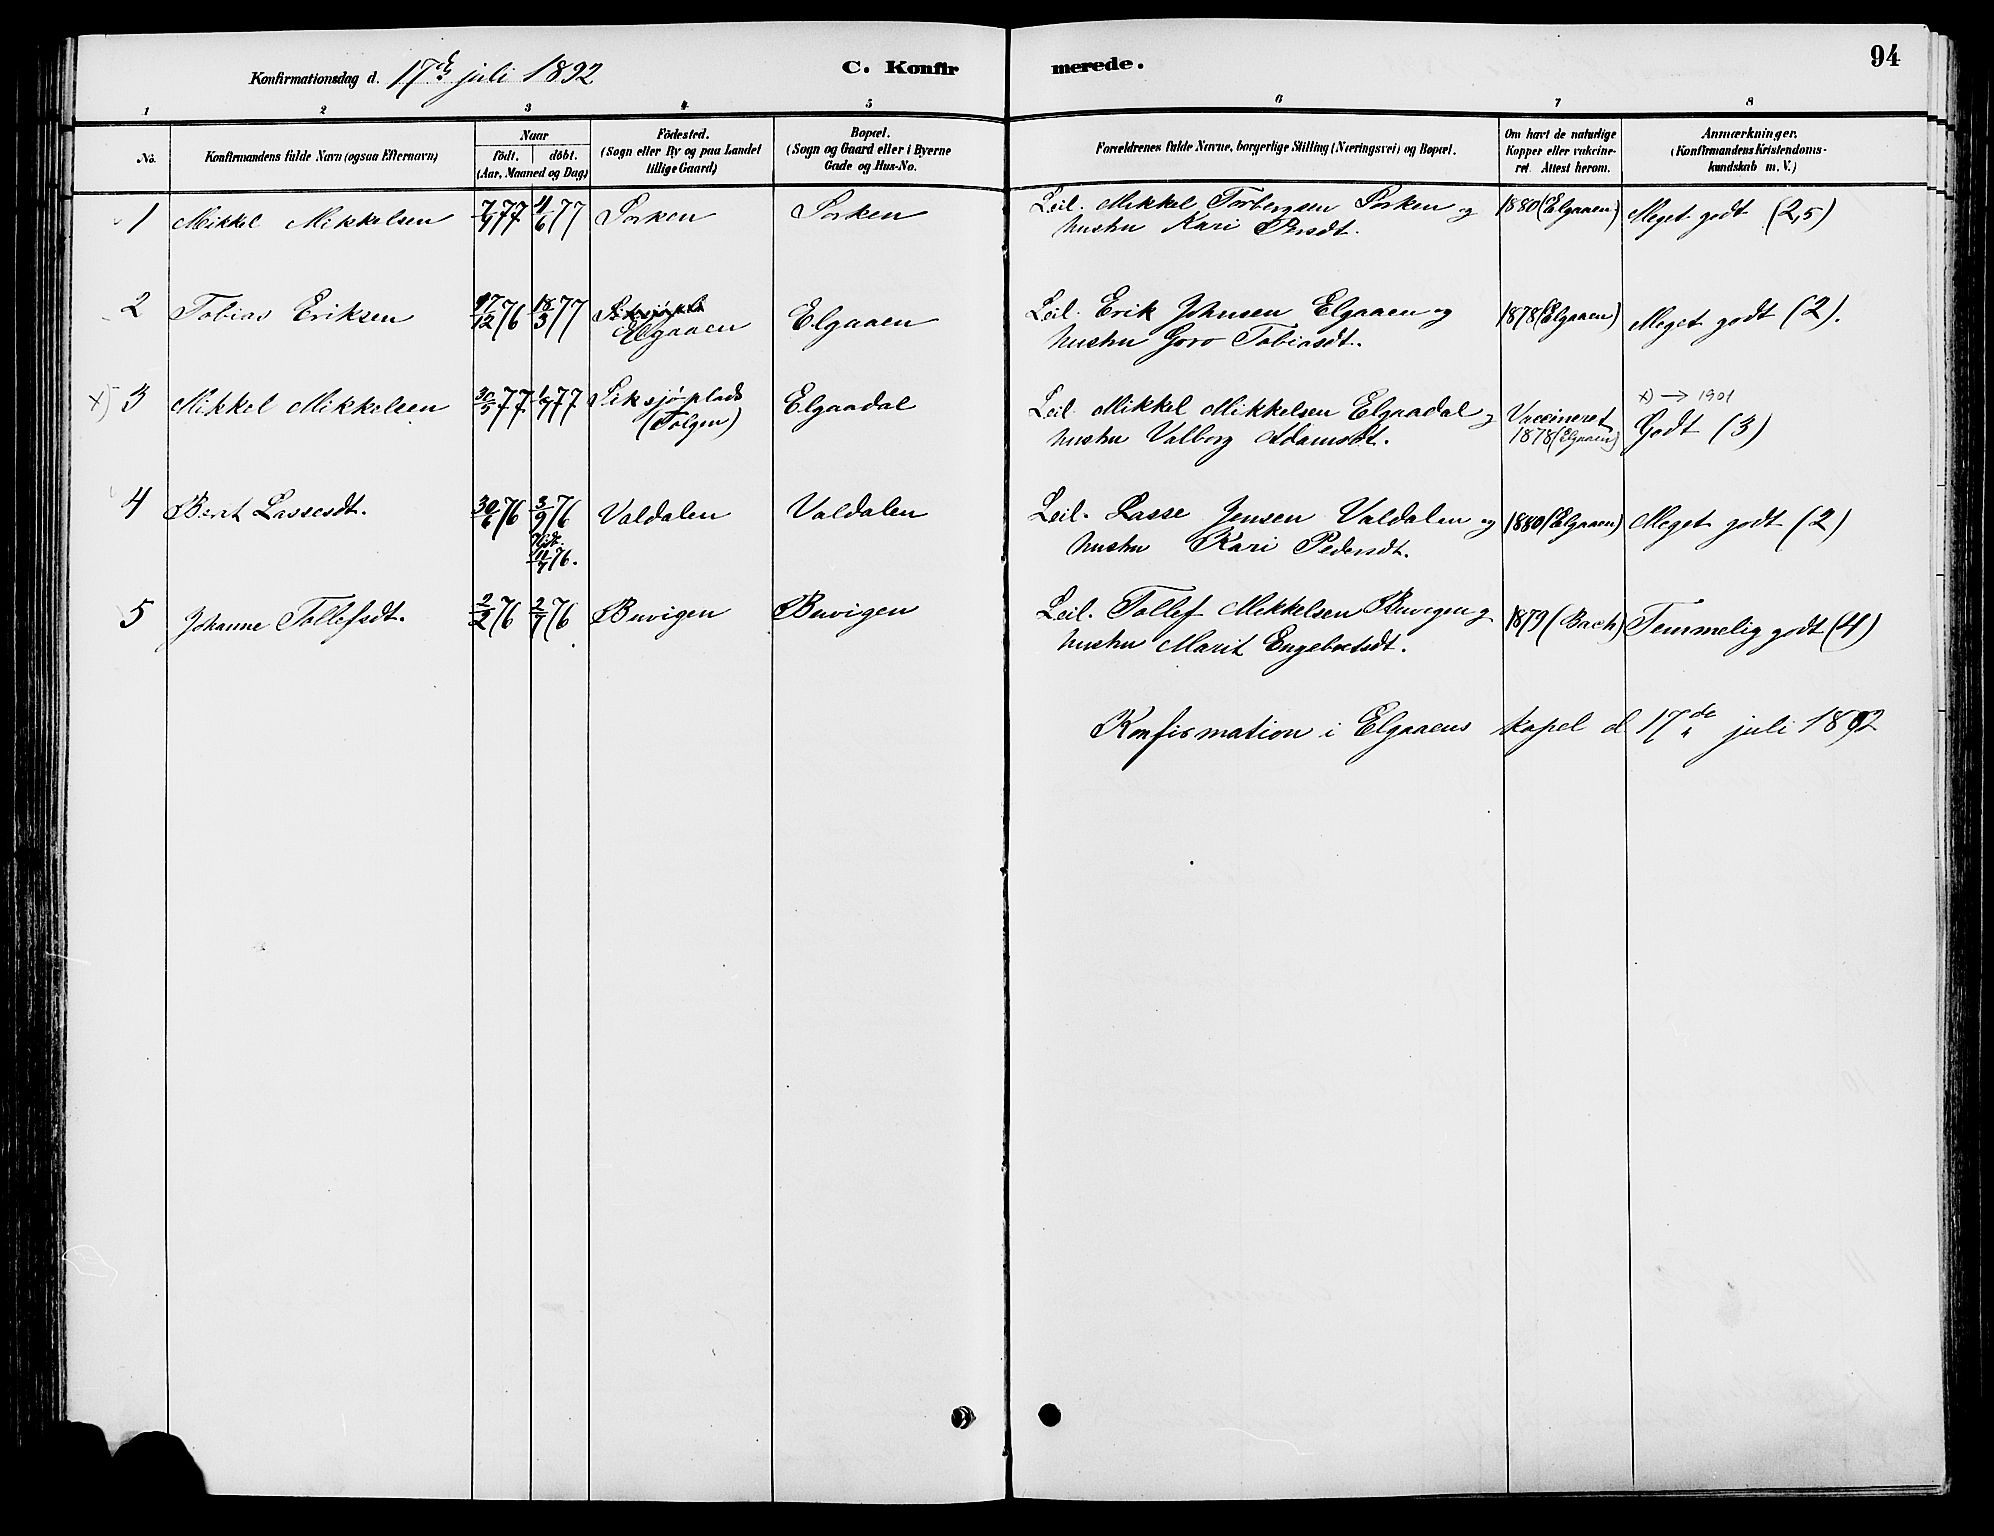 Konfirmationsdag d. 17de juli 1892
C. Konfirmerede.
94
1 2 3 4 5 6 7 8
No.
Konfirmandens fulde Navn (ogsaa Efternavn)
Naar
født. døbt.
(Aar, Maaned og Dag)
Fødested.
(Sogn eller By og paa Landet
tillige Gaard)
Bopæl.
(Sogn og Gaard eller i Byerne
Gade og Hus-No.
Forældrenes fulde Navne, borgerlige Stilling (Næringsvei) og Bopæl.
Om havt de naturlige
Kopper eller vakcine-
ret. Attest herom.
Anmærkninger.
(Konfirmandens Kristendoms-
kundskab m. V.)
1 Mikkel Mikkelsen 7/4 77 4/6 77 Sorken Sorken Leil. Mikkel Torbergsen Sorken og 1880 (Elgaaen) Meget godt (2,5)
hustru Kari Persdt.
2 Tobias Eriksen 17/12 76 18/3 77 Elgaaen Elgaaen Leil. Erik Johnsen Elgaaen og 1878 (Elgaaen) Meget godt (2).
hustru Goro Tobiasdt.
x) → 1901
x) 3 Mikkel Mikkelsen 30/5 77 1/7 77 Siksjøplads (Tolgen) Elgaadal Leil. Mikkel Mikkelsen Elgaadal og Vaccineret 1878 (Elgaaen) Godt (3)
hustru Valborg Adamsdt.
4 Berit Lassesdt. 30/6 76 3/9 76 Valdalen Valdalen Leil. Lasse Jensen Valdalen og 1880 (Elgaaen) Meget godt (2)
Hjdt. 11/7 76.
hustru Kari Pedersdt.
5 Johanne Tollefsdt. 2/2 76 2/7 76 Buvigen Buvigen Leil. Tollef Mikkelsen Buvigen og 1879 (Bach) Temmelig godt (4)
hustru Marit Engebretsdt.
Konfirmation i Elgaaens kapel d 17de juli 1892